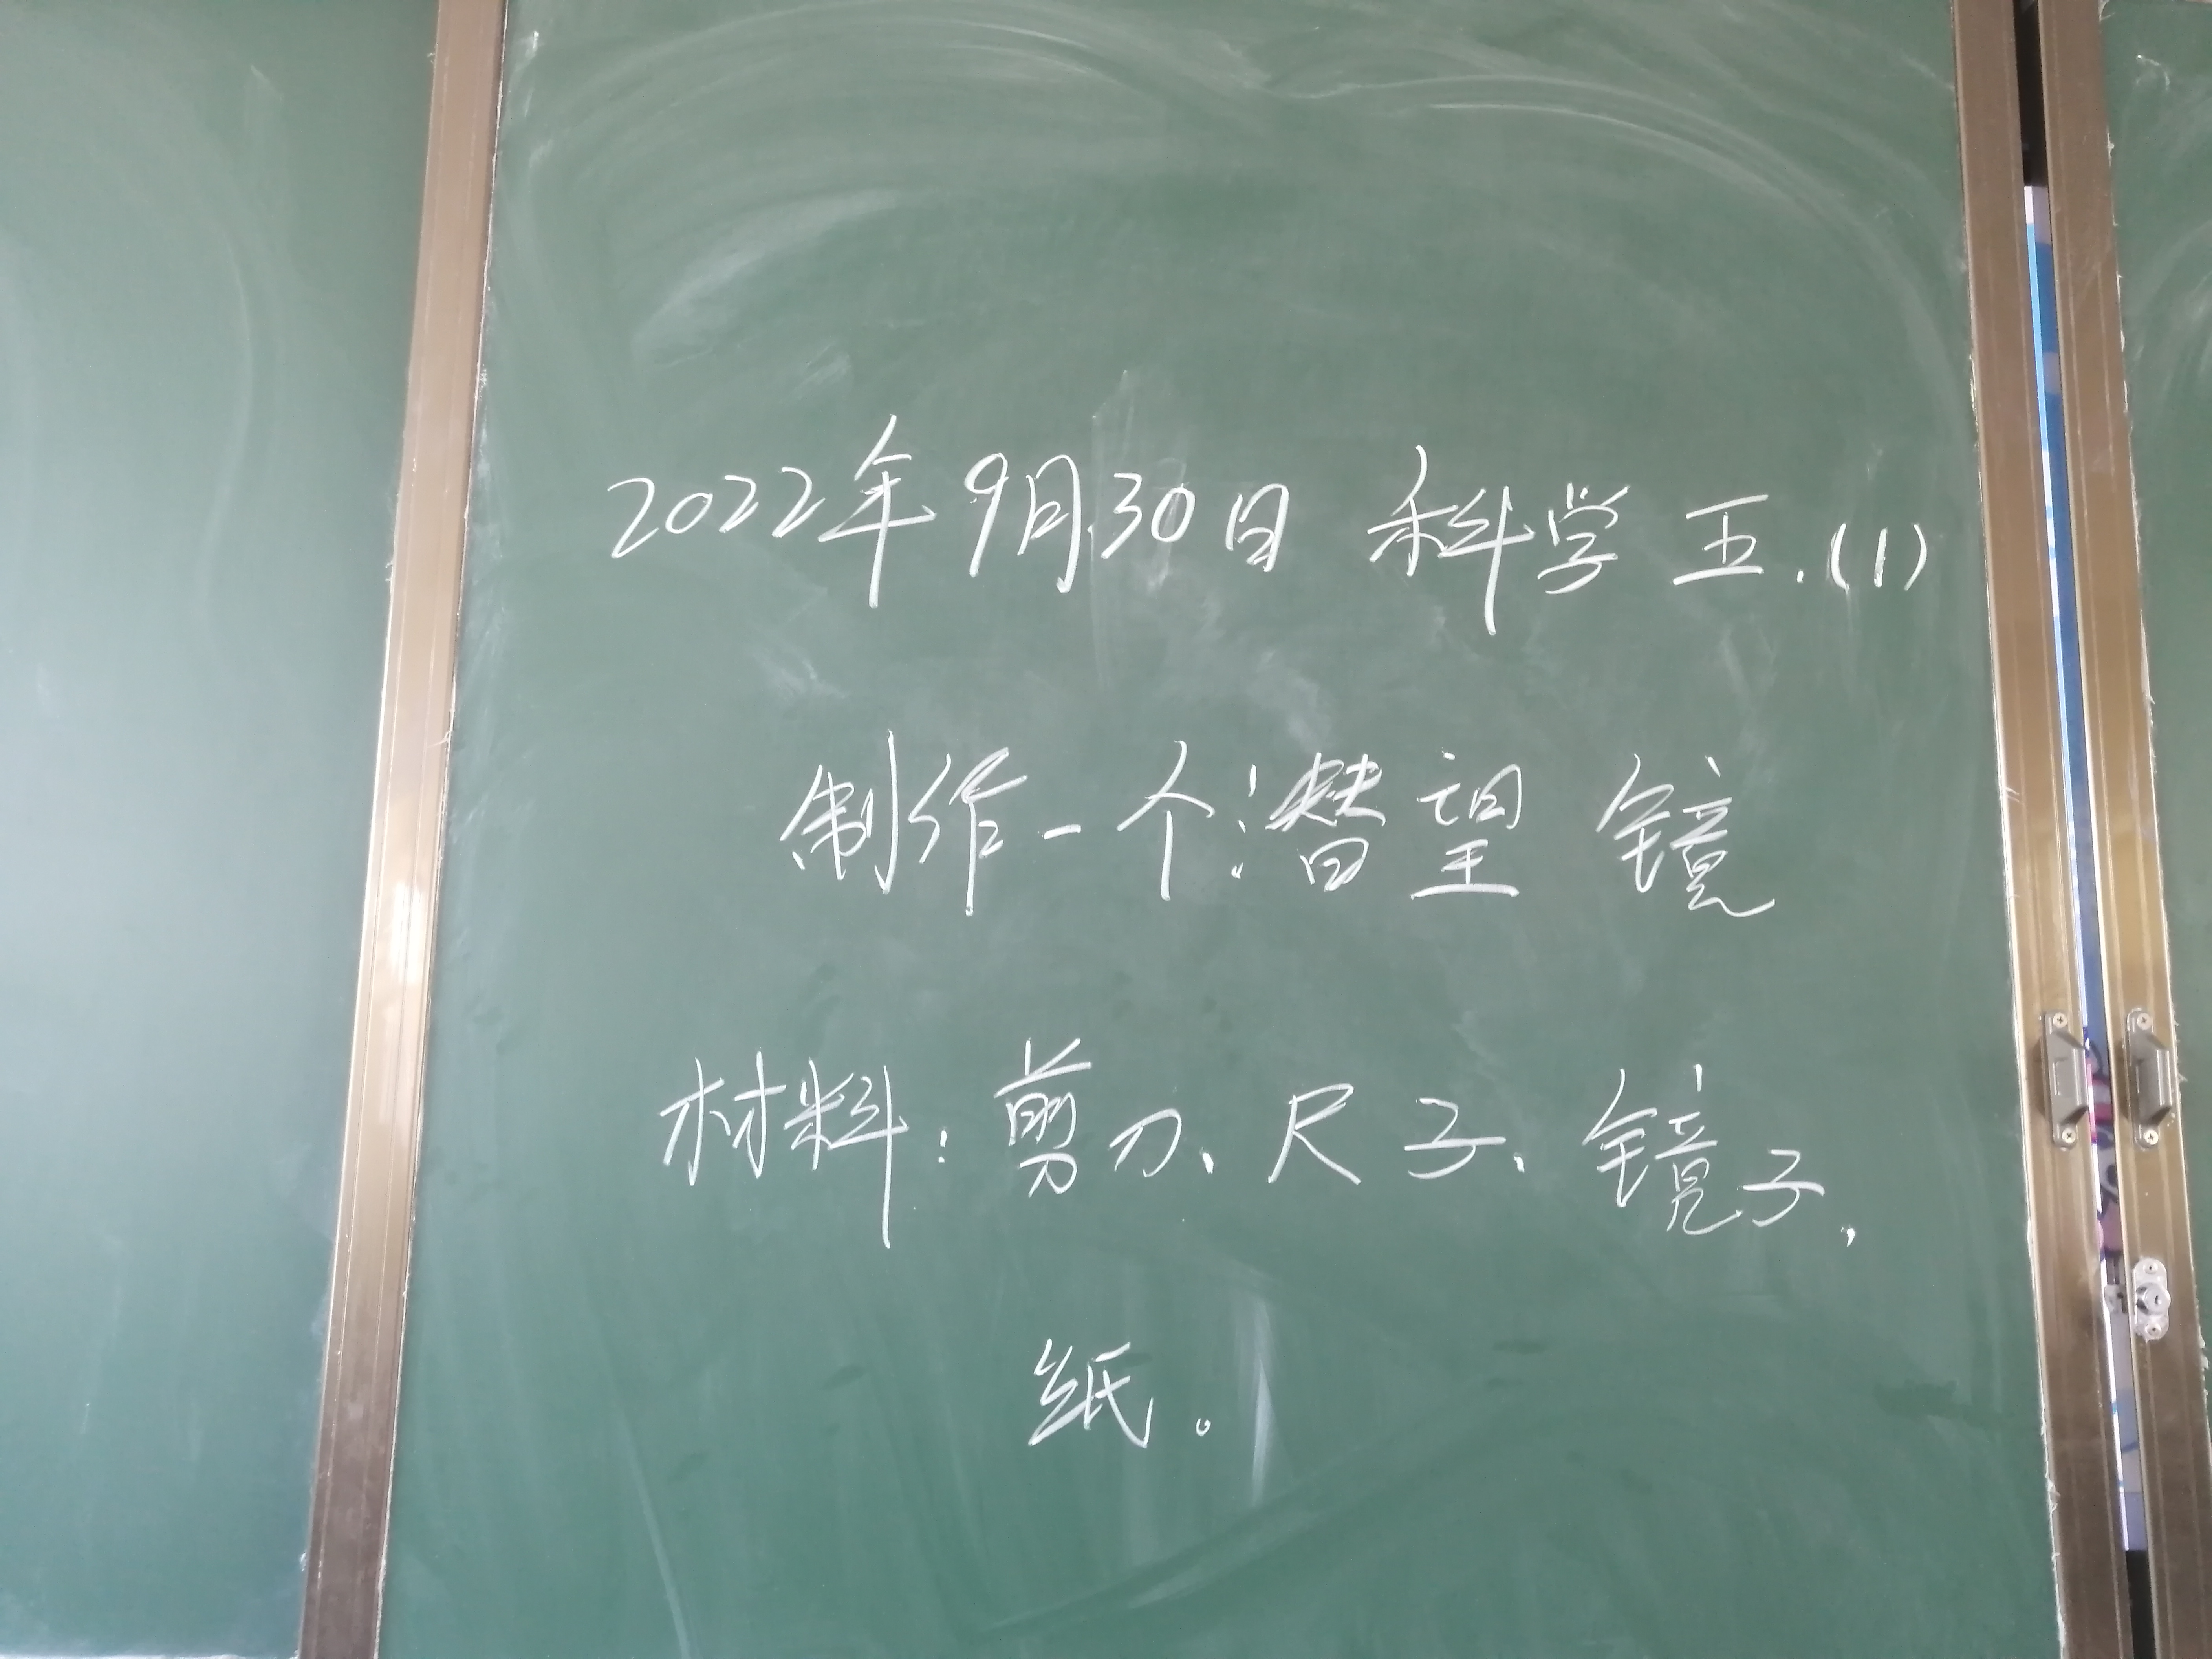 2022年9月30日 科学 五.(1)
制作一个潜望镜
材料:剪刀、尺子、镜子、
纸。